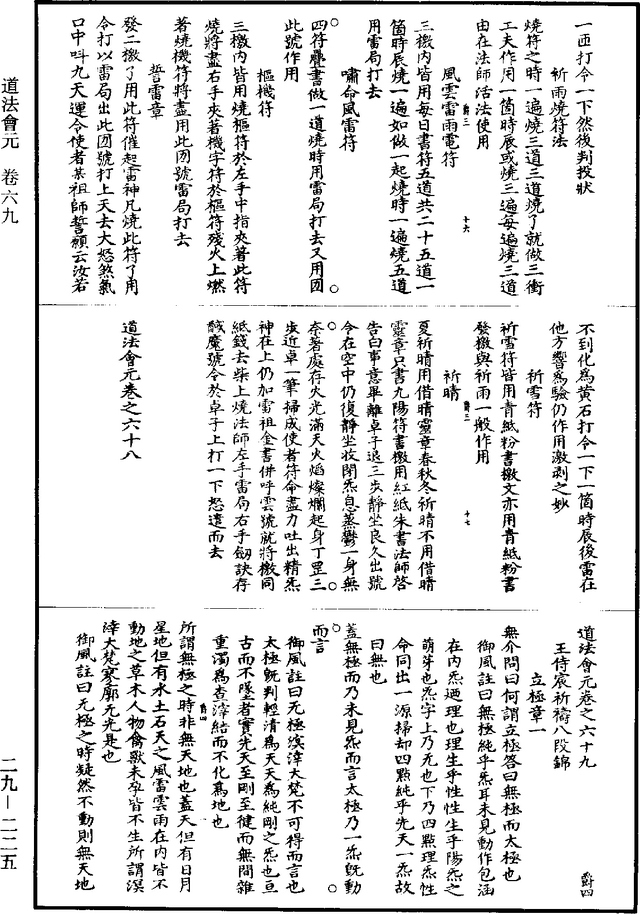 道法會元 卷六九
一匝打令一下然後判投狀
祈雨燒符法
燒符之時一遍燒三道三道燒了就做三衝
工夫作用一箇時辰或燒三遍每遍燒三道
由在法師活法使用
風雲雷雨電符
三檄內皆用每日書符五道共二十五道一
箇時辰燒一遍如做一起燒時一遍燒五道
用雷局打去
嘯命風雷符
四符疊書做一道燒時用雷局打去又用囙
此號作用
樞機符
三檄內皆用燒樞符於左手中指夾著此符
燒將盡右手夾著機字符於樞符殘火上燃
著燒機符將盡用此囙號雷局打去
誓雷章
發二檄了用此符催起雷神凡燒此符了用
令打以雷局出此囙號打上天去大怒煞氣
口中呌九天運令使者某祖師誓願云汝若
不到化為黃石打令一下一箇時辰後雷在
他方響為驗仍作用激剥之妙
祈雪符
祈雪符皆用青紙粉書檄文亦用青紙粉書
發檄與祈雨一般作用
祈晴
夏祈晴用借晴靈章春秋冬祈晴不用借晴
靈章只書九陽符書檄用紅紙朱書法師啓
告白事意畢離卓子退三步靜坐良久出號
令在空中仍復靜坐收閉炁息蒸鬱一身無
奈著處存火光滿天火焰燦爛起身丁罡三
步近卓一筆掃成使者符命盡力吐出精炁
神在上仍加雷祖金書佛呼雲號就將檄同
紙錢去柴上燒法師左手雷局右手劒訣存
馘魔號令於卓子上打一下怒遣而去
道法會元卷之六十八
道法會元卷之六十九 爵四
王侍宸祈禱八段錦
立極章一
無介問曰何謂立極答曰無極而太極也
御風註曰無極純乎炁耳未見動作包涵
在內炁廼理也理生乎性性生乎陽炁之
萌芽也炁字上乃无也下乃四點理炁性
命同出一源掃却四點純乎先天一炁故
曰無也
蓋無極而乃未見炁而言太極乃一炁旣動
而言
御風註曰无極溟涬大梵不可得而言也
太極旣判輕清為天天為純剛之炁也亘
古而不墜者實先天至剛至健而無間雜
重濁為查滓結而不化為地也
所謂無極之時非無天地也蓋天但有日月
星地但有水土石天之風雷雲雨在內皆不
動地之草木人物禽獸未孕皆不生所謂溟
涬大梵寥廓无光是也
御風註曰无極之時凝然不動則無天地
二九－二二五